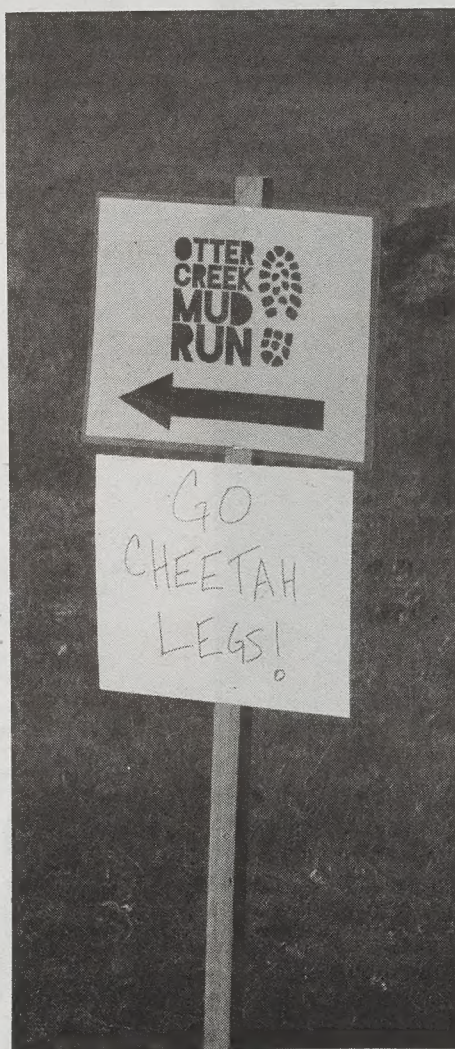 OTTER
CREEK
MUD
RUN
GO
CHEETAH
LEGS!